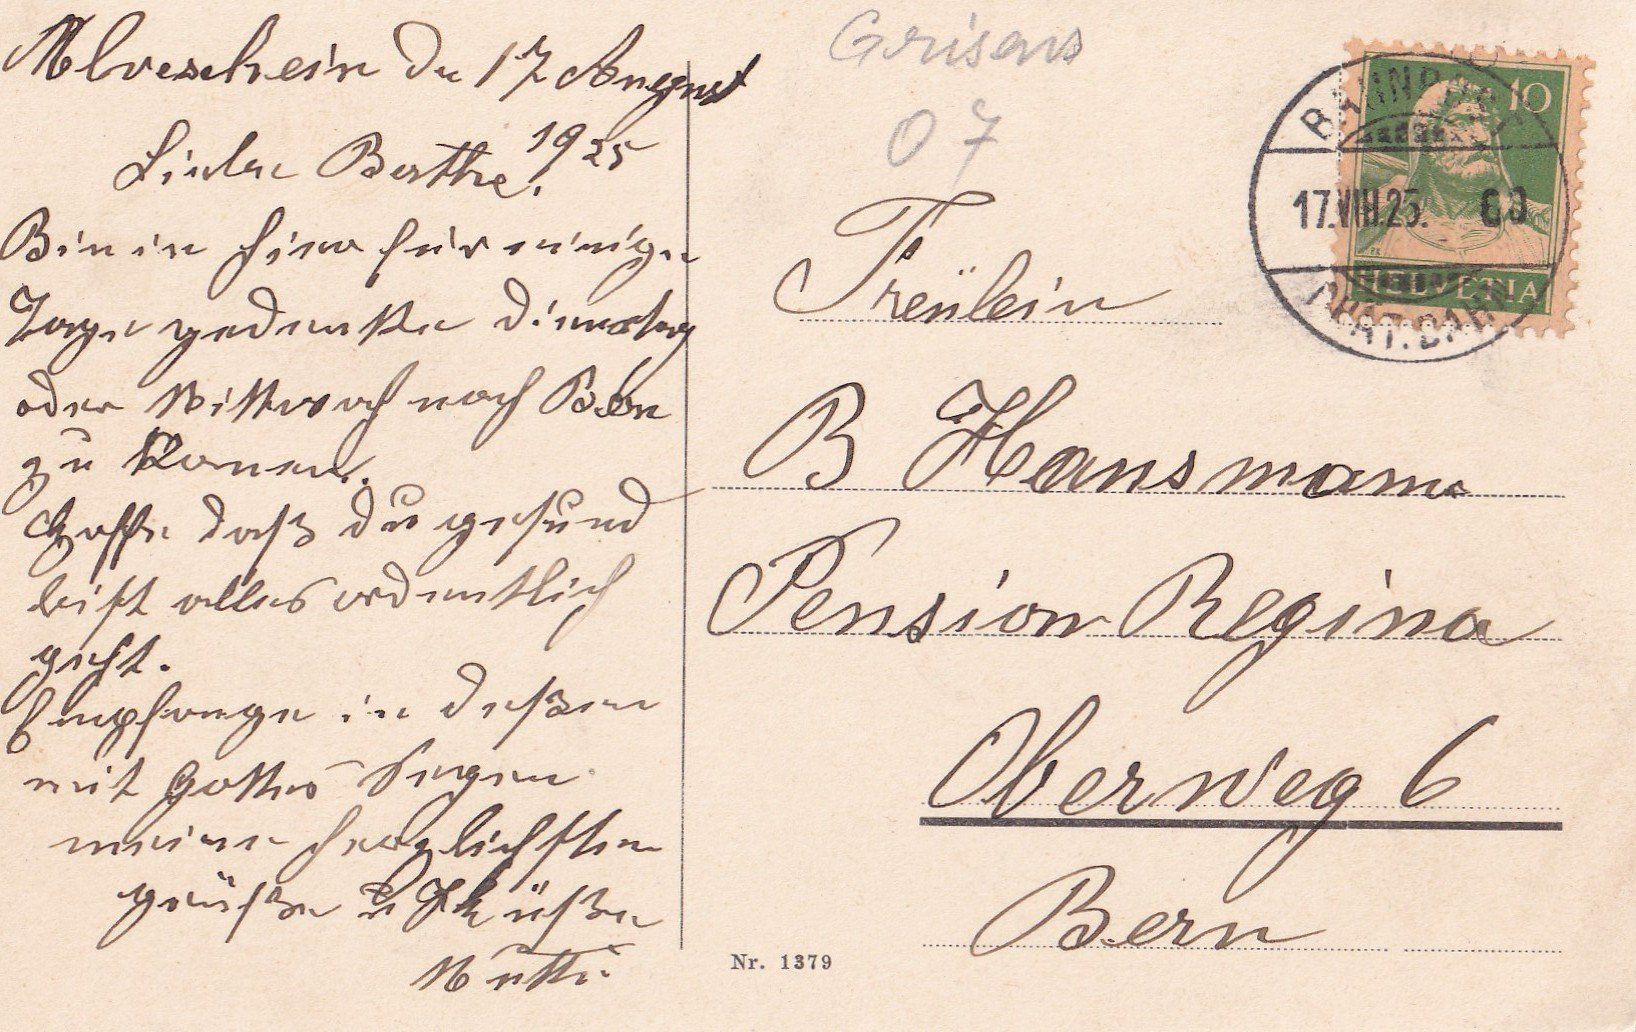 Alveschein du 17 August
1925
Liebe Berthe.
Bin in hier für einige
Tage gedenke dienstag
oder Mittwoch nach Bern
zu komen.
Hoffe daß du gesund
bist alles ordentlich
geht.
Empfange in deßen
mit Gottes Segen
meine herzlichsten
grüße u Küße
Mutti
Grisons
07
BAHNPOST
17.VIII.25. 60
RHÄT. BAHN
10
HELVETIA
Freülein
B Hansmann
Pension Regina
Oberweg 6
Bern
Nr. 1379